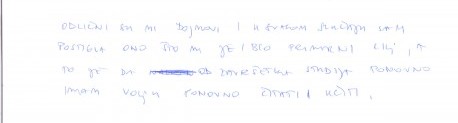 ODLIČNI SU MI DOJMOVI I U SVAKOM SLUČAJU SAM
POSTIGLA ONO ŠTO MI JE I BIO PRIMARNI CILJ, A
TO JE DA OD ZAVRŠETKA STUDIJA PONOVNO
IMAM VOLJU PONOVNO ČITATI I UČITI.